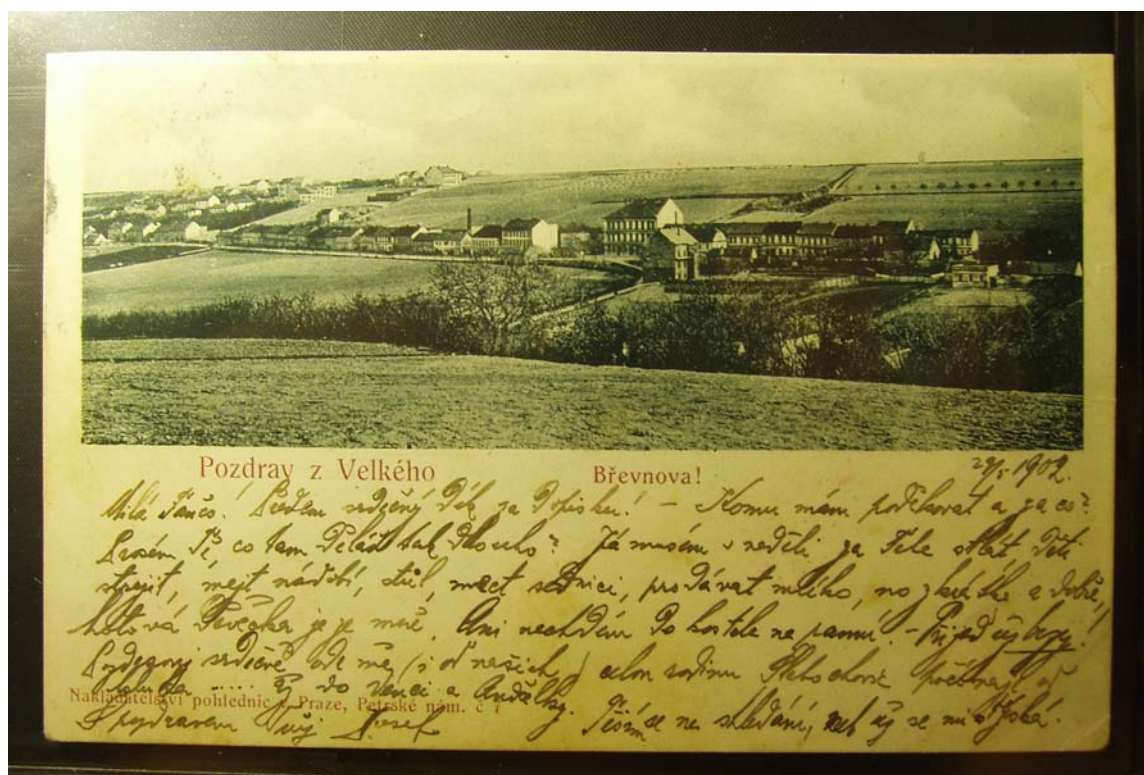 Pozdrav z Velkého Břevnova!
1902.
Milá Předem srdečný Dík za Dopisku! – Komu mám poděkovat a za co?
Prosím Tě, co tam Děláš tak Dlouho? Já musím v neděli za Tebe stlát, Děti
strojit, mejt nádobí, stůl, mect sednici, prodávat mlíko, no zkrátka a dobře,
hotová Děvečka je ze mně. Ani nechodím Do kostela na panny! – Přijeď už brzy!
srdečně ode mě (i od našich) celou rodinu počínajíc od
až do a Andělky. Těším se na shledání, neb už se mi stýská.
Nakladatelství pohlednic v Praze, Petrské nám. č 7
S pozdravem Tvůj Josef